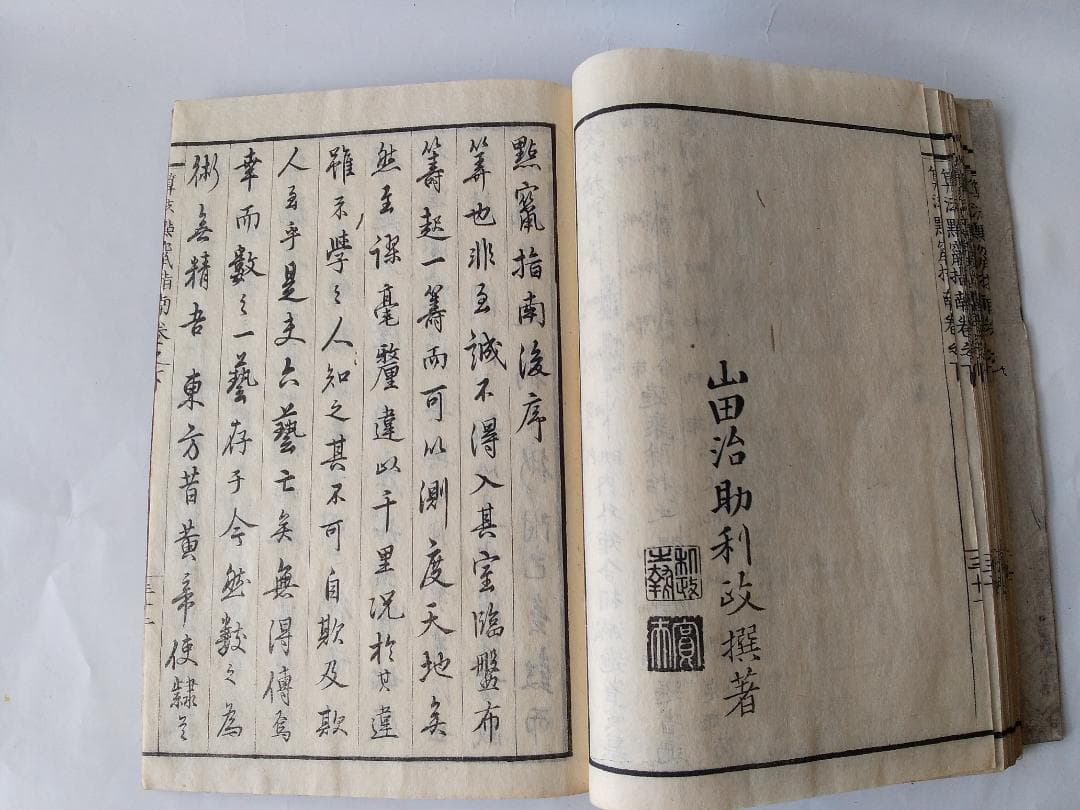 算法點竄指南卷之下
三十一
山田治助利政撰著
利政
點竄指南後序
筭也非至誠不得入其室臨盤布
籌起一籌而可以測度天地矣
然至謬毫釐違以千里況於其違
雖示學之人知之其不可自欺及欺
人至乎是夫六藝亡矣無得傳焉
幸而數之一藝存于今然數之為
術無精吾 東方昔黃帝使隷首
算法點竄指南卷之下
三十二